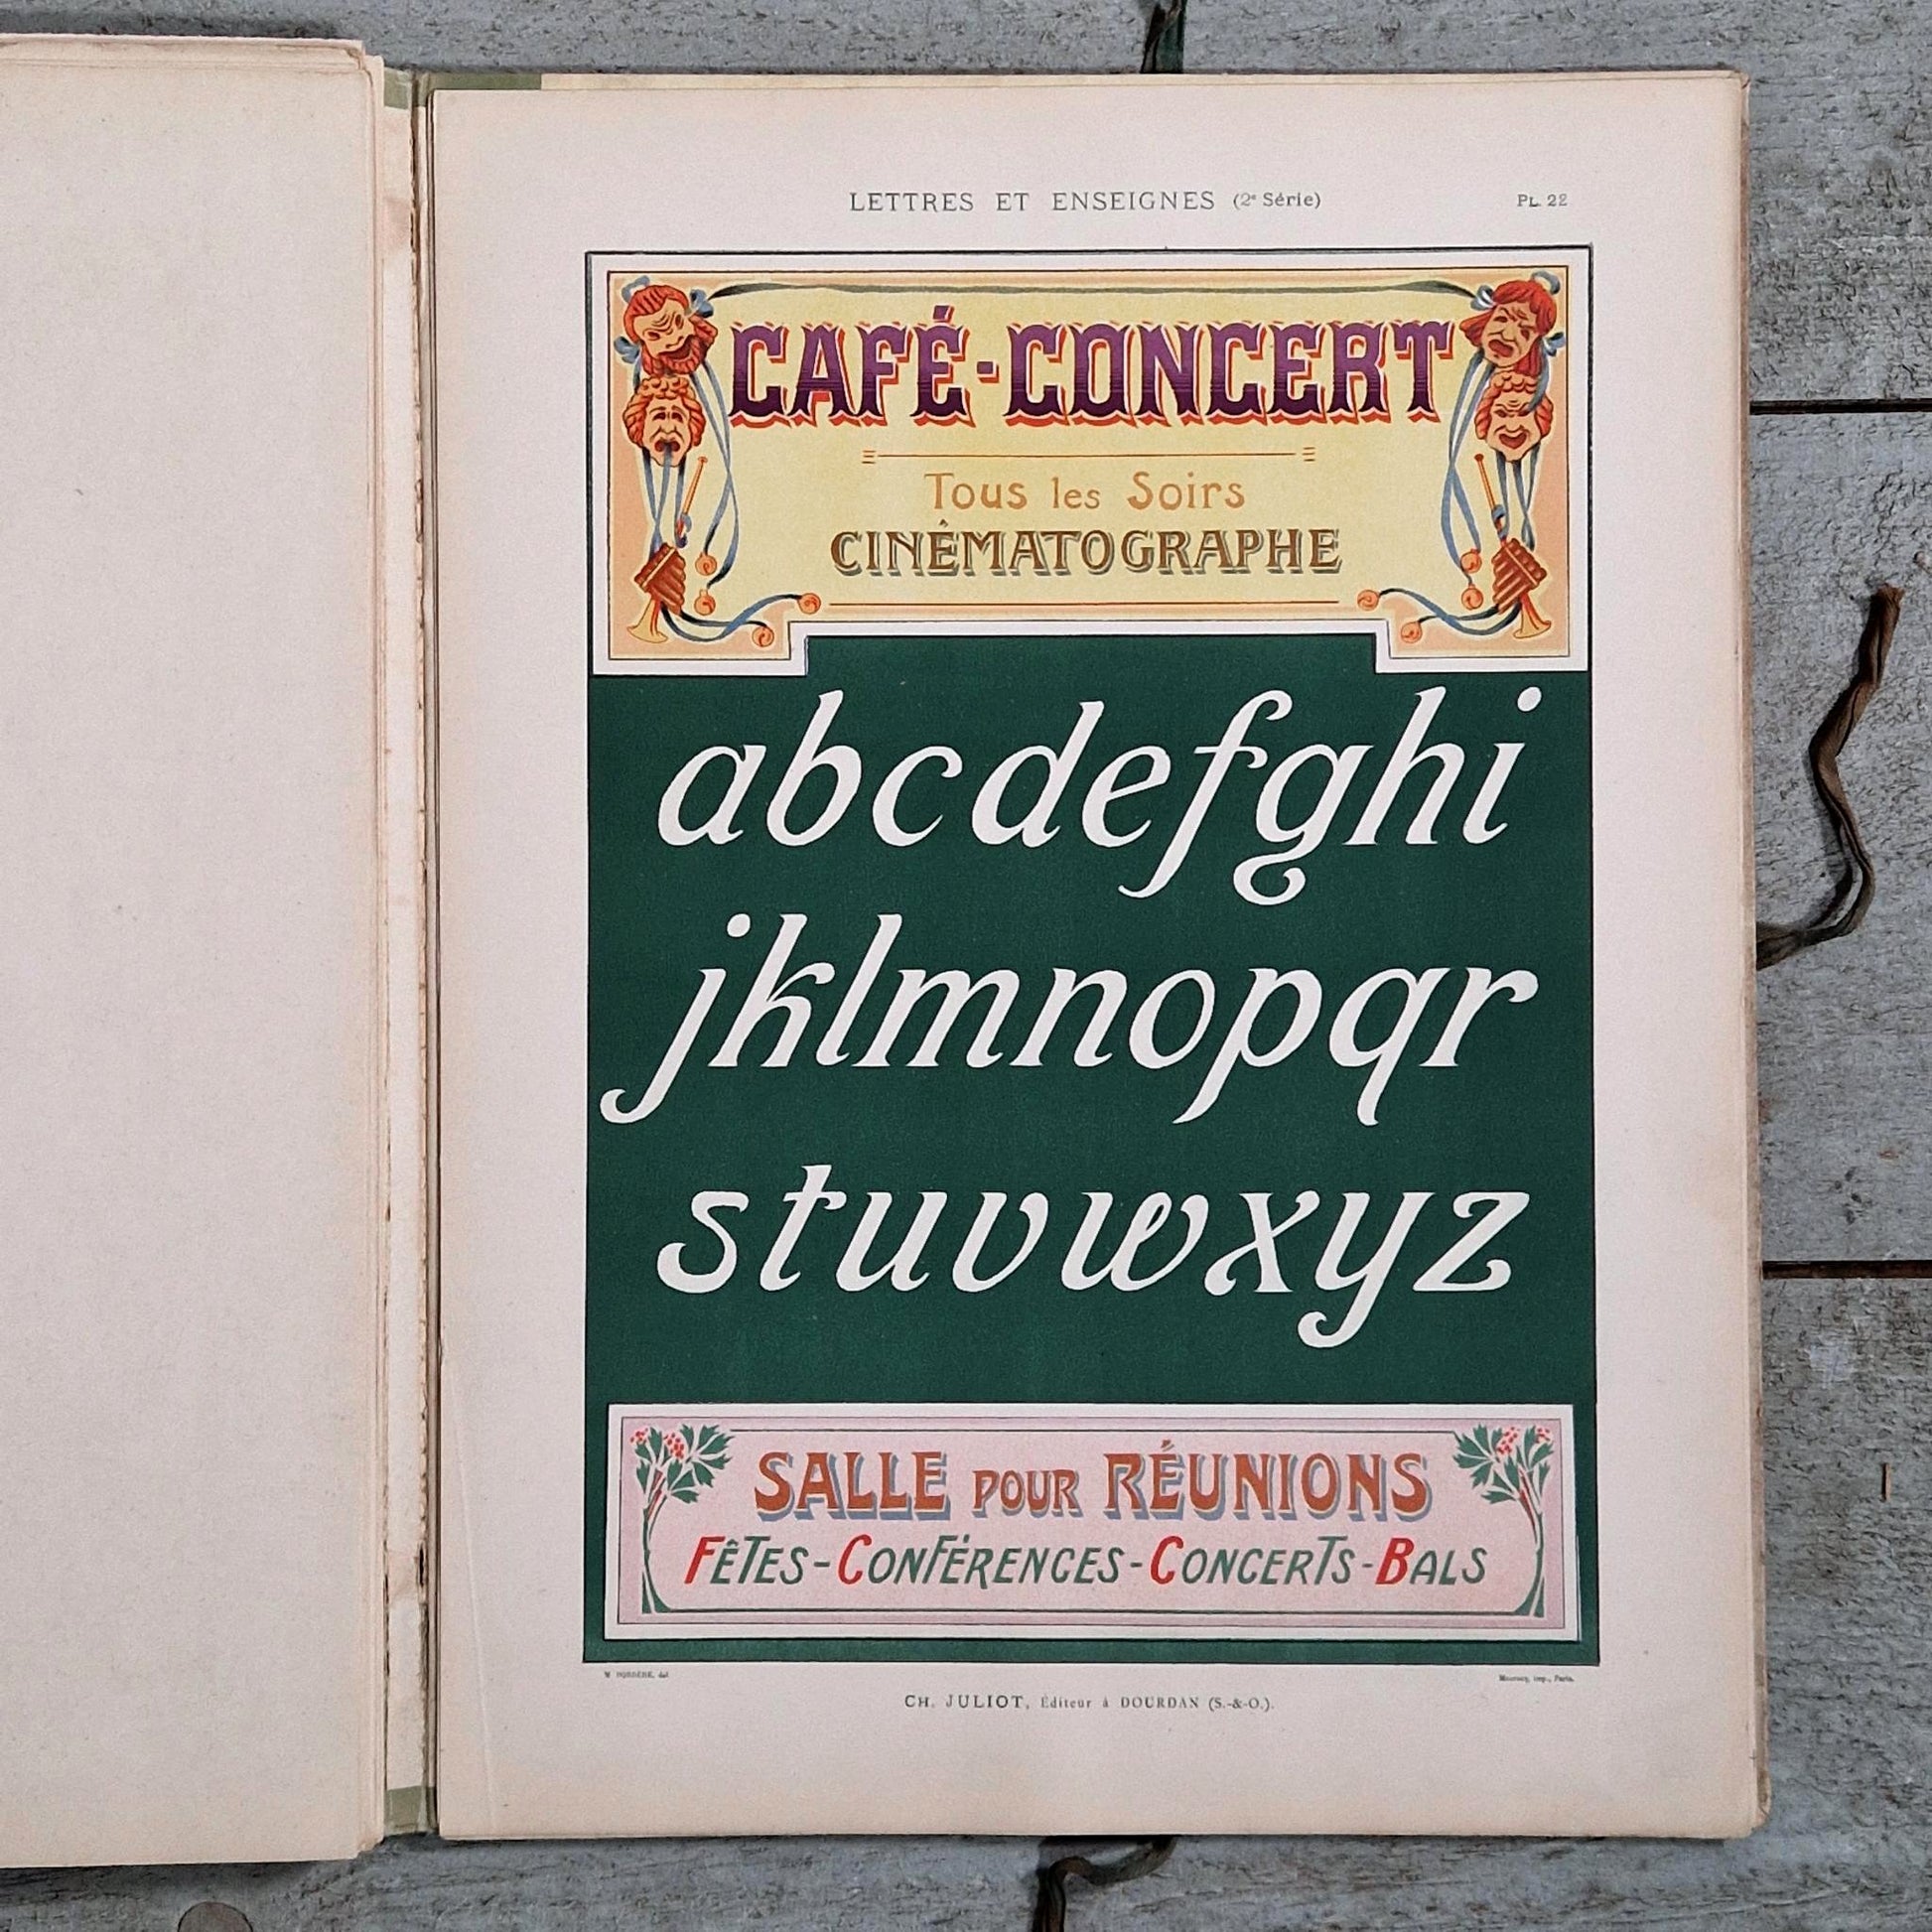 LETTRES ET ENSEIGNES (2e Série)
PL. 22
CAFÉ-CONCERT
Tous les Soirs
CINÉMATOGRAPHE
abcdefghi
jklmnopqr
stuvwxyz
SALLE POUR RÉUNIONS
FÊTES-CONFÉRENCES-CONCERTS-BALS
imp., Paris.
CH. JULIOT, Éditeur à DOURDAN (S.-&-O.).